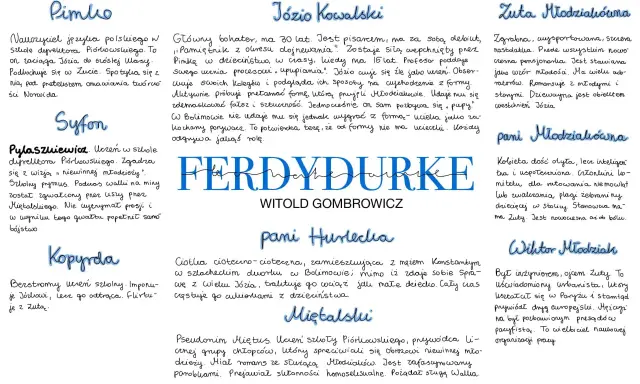 Pimko
Nauczyciel języka polskiego w
szkole dyrektora Piórkowskiego. To
on zaciąga Józia do szóstej klasy.
Podkochuje się w Zucie. Spotyka się z
nią pod pretekstem omawiania twórczoś
ci Norwida.
Syfon
Pylaszkiewicz. Uczeń w szkole
dyrektora Piórkowskiego. Zgadza
się z wizją "niewinnej młodzieży".
Szkolny prymus. Podczas walki na miny
został zgwałcony przez uszy przez
Miętalskiego. Nie wytrzymał presji i
w wyniku tego gwałtu popełnił samo
bójstwo
Kopyrda
Bezstronny uczeń szkolny. Imponu-
je Józiowi, lecz go odtrąca. Flirtu-
je z Zutą.
Józio Kowalski
Główny bohater, ma 30 lat. Jest pisarzem, ma za sobą debiut,
"Pamiętnik z okresu dojrzewania". Zostaje siłą wepchnięty przez
Pimkę w dzieciństwo, w czasy, kiedy ma 16 lat. Profesor poddaje
swego ucznia procesowi "upupiania". Józio czuje się źle jako uczeń. Obser-
wuje swoich kolegów i podgląda ich sposoby na wychodzenie z formy.
Aktywnie próbuje przełamać formę, którą przyjęli Młodziakowie. Udaje mu się
zdemaskować fałsz i sztuczność. Jednocześnie on sam pozbywa się "pupy"
W Bolimowie nie udaje mu się jednak wygrać z formą – wielką jako za-
kochany porywacz. To potwierdza tezę, że od formy nie ma ucieczki. Każdy
odgrywa jakąś rolę.
FERDYDURKE
WITOLD GOMBROWICZ
pani Hurlecka
Ciotka cioteczno-cioteczna, zamieszkująca z mężem Konstantym
w szlacheckim dworku w Bolimowie; mimo iż zdaje sobie spra-
wę z wieku Józia, traktuje go wciąż jak małe dziecko. Cały czas
częstuje go cukierkami z dzieciństwa.
Miętalski
Pseudonim Miętus. Uczeń szkoły Piórkowskiego, przywódca li-
cznej grupy chłopców, którzy sprzeciwiali się obrazowi niewinnej mło-
dzieży. Miał romans ze służącą Młodziaków. Jest zafascynowany
parobkami. Przejawiał skłonności homoseksualne. Pożądał sługę Walka.
Zuta Młodziakówna
Zgrabna, wysportowana, szesna
nastolatka. Przede wszystkim nowo
czesna pensjonarka. Jest stawiana
jako wzór młodości. Ma wielu ado-
ratorów. Romansuje z młodymi i
starymi. Dziewczyna jest obiektem
westchnień Józia.
pani Młodziakówna
Kobieta dość otyła, lecz inteligen
tna i uspołeczniona. Członkini ko-
mitetu dla ratowania niemowląt
lub zwalczania plagi żebraniny
dziecięcej w stolicy. Stanowcza ma-
ma Zuty. Jest nowoczesna aż do bólu.
Wiktor Młodziak
Był inżynierem, ojcem Zuty. To
uświadomiony urbanista, który
kształcił się w Paryżu i stamtąd
przywiózł dryg europejski. Mężczyz
na był pozbawionym przesądów
pacyfistą. To wielbiciel naukowej
organizacji pracy.